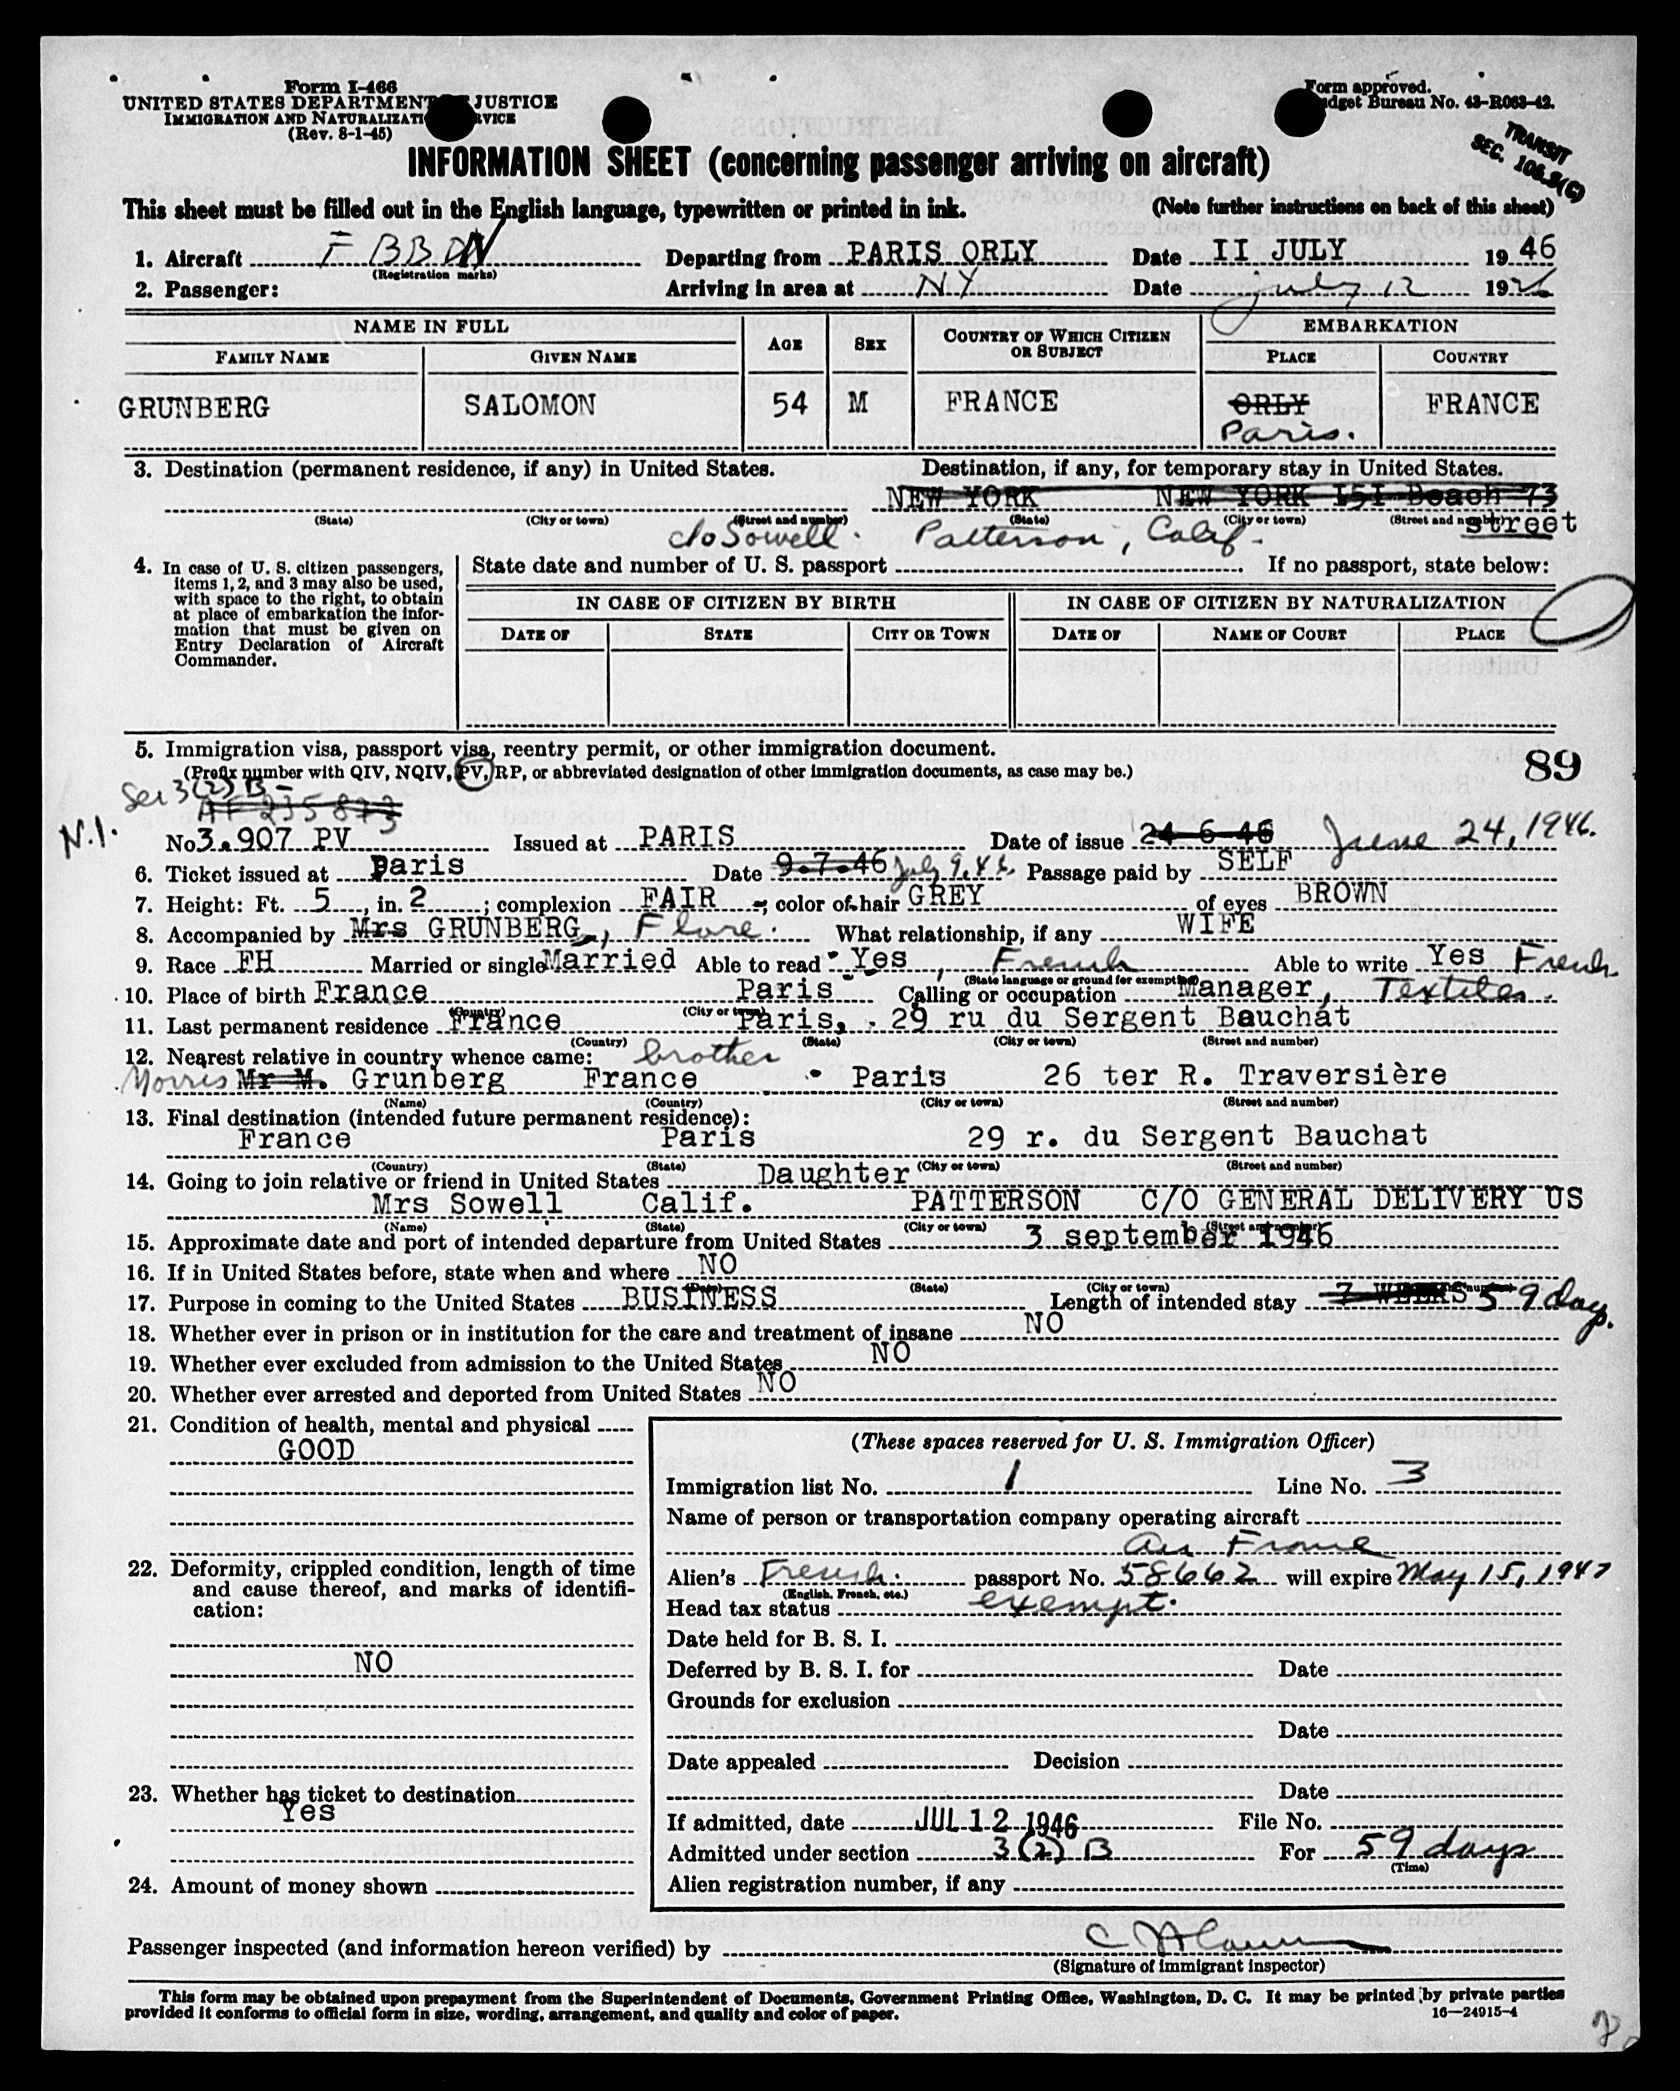 Form I-466
UNITED STATES DEPARTMENT JUSTICE
IMMIGRATION AND NATURALIZATI RVICE
(Rev. 8-1-45)
Form approved.
dget Bureau No. 43-R063-42.
TRANSIT
SEC. 106.3(C)
INFORMATION SHEET (concerning passenger arriving on aircraft)
This sheet must be filled out in the English language, typewritten or printed in ink. (Note further instructions on back of this sheet)
1. Aircraft F BBDN Departing from PARIS ORLY Date II JULY 19 46
(Registration marks)
2. Passenger: Arriving in area at NY Date July 12 1946
NAME IN FULL AGE SEX COUNTRY OF WHICH CITIZEN OR SUBJECT EMBARKATION
FAMILY NAME GIVEN NAME PLACE COUNTRY
GRUNBERG SALOMON 54 M FRANCE ORLY FRANCE
Paris.
3. Destination (permanent residence, if any) in United States. Destination, if any, for temporary stay in United States.
NEW YORK NEW YORK I5I Beach 73
(State) (City or town) (Street and number) (State) (City or town) (Street and number) street
c/o Sowell. Patterson, Calif.
4. In case of U. S. citizen passengers, items 1, 2, and 3 may also be used, with space to the right, to obtain at place of embarkation the information that must be given on Entry Declaration of Aircraft Commander.
State date and number of U. S. passport If no passport, state below:
IN CASE OF CITIZEN BY BIRTH IN CASE OF CITIZEN BY NATURALIZATION
DATE OF STATE CITY OR TOWN DATE OF NAME OF COURT PLACE
5. Immigration visa, passport visa, reentry permit, or other immigration document.
89
(Prefix number with QIV, NQIV, PV, RP, or abbreviated designation of other immigration documents, as case may be.)
Sec 3(2) B
AF 235873
N.I.
No 3.907 PV Issued at PARIS Date of issue 24-6-46 June 24, 1946.
6. Ticket issued at Paris Date 9.7.46 July 9, 46 Passage paid by SELF
7. Height: Ft. 5, in. 2; complexion FAIR; color of hair GREY of eyes BROWN
8. Accompanied by Mrs GRUNBERG, Flore. What relationship, if any WIFE
9. Race FH Married or single Married Able to read Yes, French Able to write Yes French
(State language or ground for exemption)
10. Place of birth France Paris Calling or occupation Manager, Textiles.
(Country) (City or town)
11. Last permanent residence France Paris, 29 ru du Sergent Bauchat
(Country) (State) (City or town) (Street and number)
12. Nearest relative in country whence came: brother
Morris Mr M. Grunberg France Paris 26 ter R. Traversière
(Name) (Country) (City or town) (Street and number)
13. Final destination (intended future permanent residence):
France Paris 29 r. du Sergent Bauchat
(Country) (State) (City or town) (Street and number)
14. Going to join relative or friend in United States Daughter
Mrs Sowell Calif. PATTERSON C/O GENERAL DELIVERY US
(Name) (State) (City or town) (Street and number)
15. Approximate date and port of intended departure from United States 3 september 1946
16. If in United States before, state when and where NO
(Date) (State) (City or town) (Street and number)
17. Purpose in coming to the United States BUSINESS Length of intended stay 7 WEEKS 59 days.
18. Whether ever in prison or in institution for the care and treatment of insane NO
19. Whether ever excluded from admission to the United States NO
20. Whether ever arrested and deported from United States NO
21. Condition of health, mental and physical
GOOD
22. Deformity, crippled condition, length of time and cause thereof, and marks of identification:
NO
23. Whether has ticket to destination
Yes
24. Amount of money shown
(These spaces reserved for U. S. Immigration Officer)
Immigration list No. 1 Line No. 3
Name of person or transportation company operating aircraft
Air France
Alien's French passport No. 58662 will expire May 15, 1947
(English, French, etc.)
Head tax status exempt.
Date held for B. S. I.
Deferred by B. S. I. for Date
Grounds for exclusion
Date
Date appealed Decision
Date
If admitted, date JUL 12 1946 File No.
Admitted under section 3(2) B For 59 days
(Time)
Alien registration number, if any
Passenger inspected (and information hereon verified) by
(Signature of Immigrant Inspector)
This form may be obtained upon prepayment from the Superintendent of Documents, Government Printing Office, Washington, D. C. It may be printed by private parties
provided it conforms to official form in size, wording, arrangement, and quality and color of paper. 16—24915-4